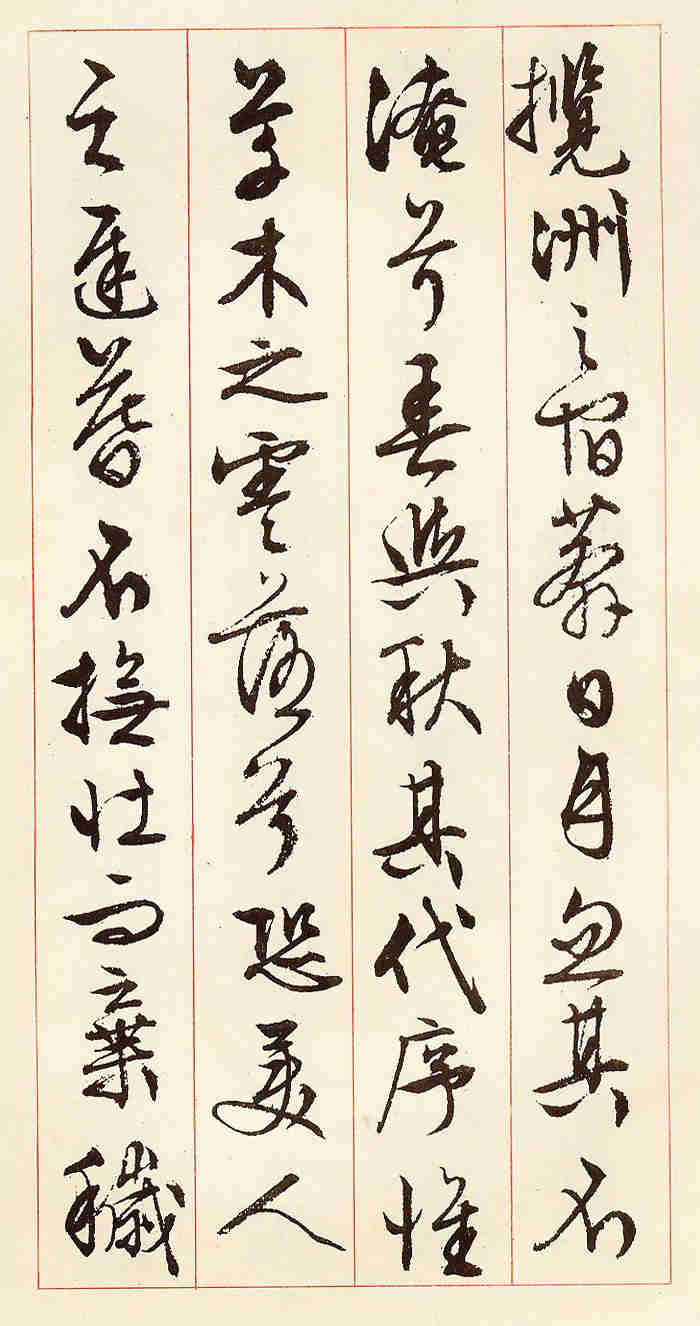 攬洲之宿莽日月忽其不
淹兮春與秋其代序惟
草木之零落兮恐美人
之遲暮不撫壯而棄穢